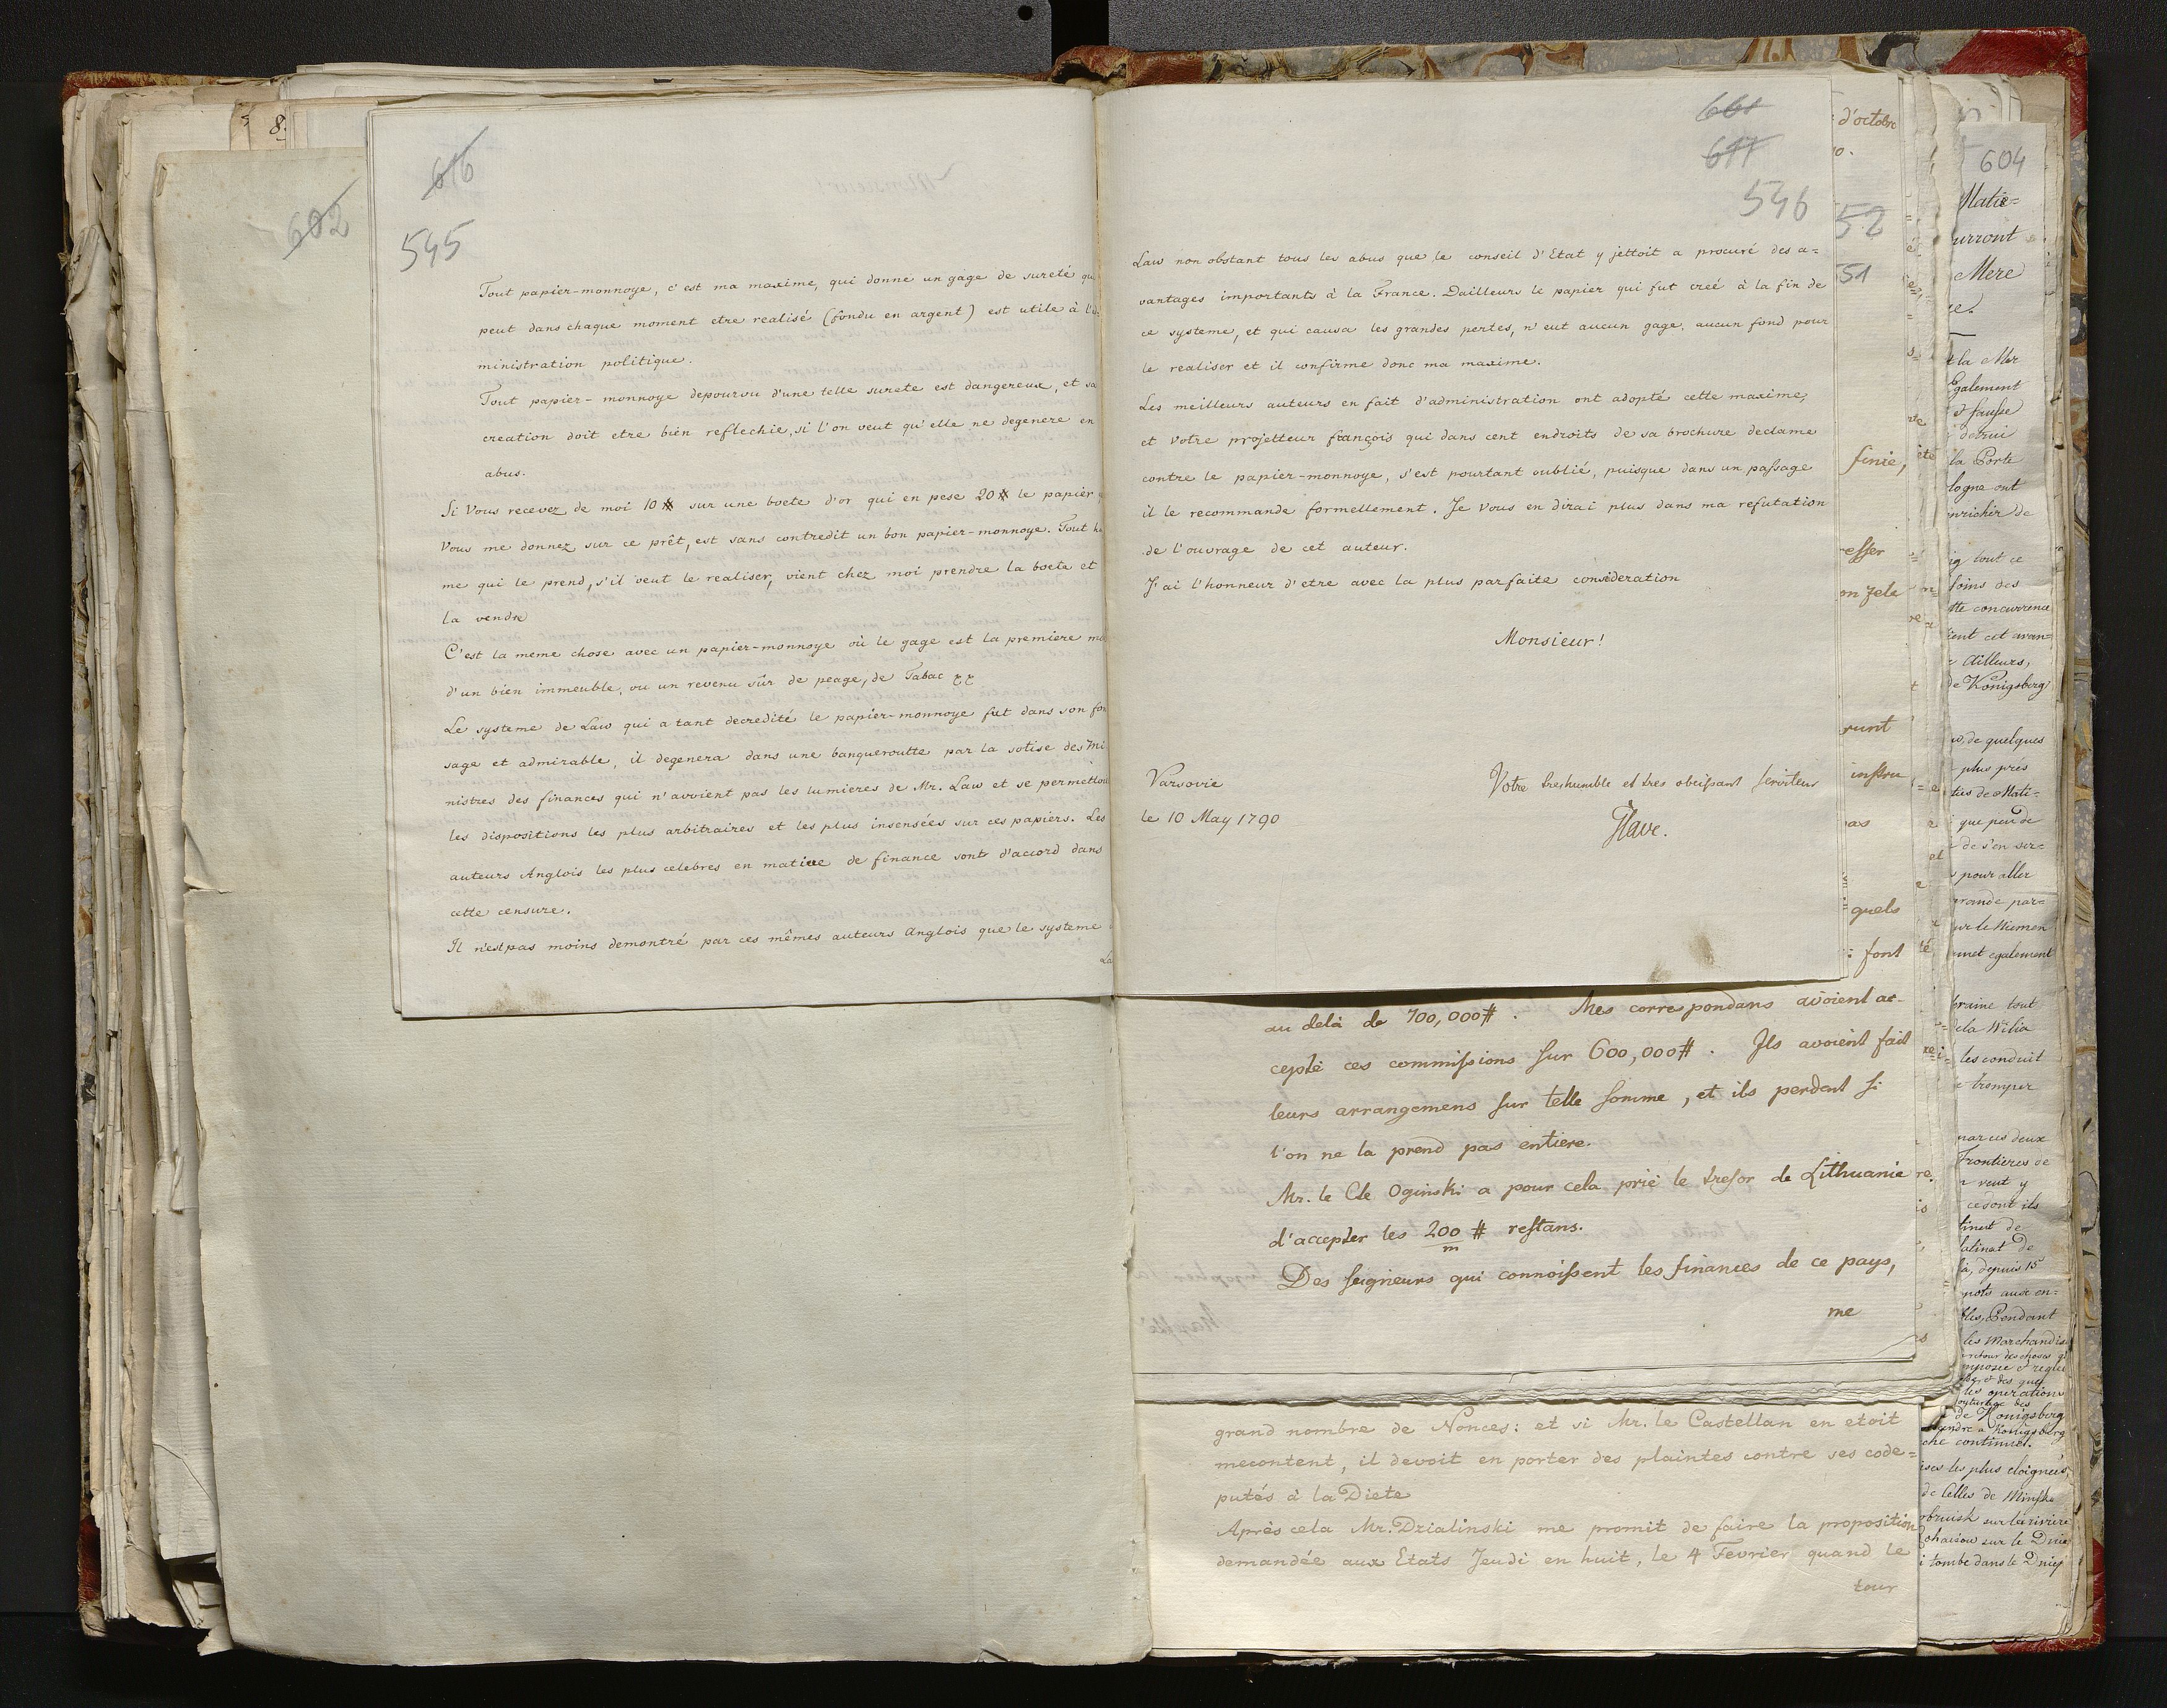 616
545
Tout papier-monnoye, c'est ma maxime, qui donne un gage de sureté qu
peut dans chaque moment etre realisé (fondu en argent) est utile à l'a
ministration politique.
Tout papier-monnoye depourvu d'une telle sureté est dangereux, et sa
creation doit etre bien reflechie, si l'on veut qu'elle ne degenere en
abus.
Si Vous recevez de moi 10 # sur une boete d'or qui en pese 20 # le papier
Vous me donnez sur ce prêt, est sans contredit un bon papier-monnoye. Tout ho
me qui le prend, s'il veut le realiser, vient chez moi prendre la boete et
la vendre
C'est la meme chose avec un papier-monnoye où le gage est la premiere mo
d'un bien immeuble, ou un revenu sûr de peage, de Tabac
Le systeme de Law qui a tant decredité le papier-monnoye fut dans son fon
sage et admirable, il degenera dans une banqueroutte par la sotise des Mi
nistres des finances qui n'avoient pas les lumieres de Mr. Law et se permettoi
les dispositions les plus arbitraires et les plus insensées sur ces papiers. Les
auteurs Anglois les plus celebres en matiere de finance sont d'accord dans
cette censure.
Il n'est pas moins demontré par ces mêmes auteurs Anglois que le systeme
La
602
8.
661
617
546
Law non obstant tous les abus que le conseil d'Etat y jettoit a procuré des a=
vantages importants à la France. Dailleurs le papier qui fut creé à la fin de
ce systeme, et qui causa les grandes pertes, n'eut aucun gage, aucun fond pour
le realiser et il confirme donc ma maxime.
Les meilleurs auteurs en fait d'administration ont adopté cette maxime,
et votre projetteur françois qui dans cent endroits de sa brochure declame
contre le papier-monnoye, s'est pourtant oublié, puisque dans un passage
il le recommande formellement. Je Vous en dirai plus dans ma refutation
de l'ouvrage de cet auteur.
J'ai l'honneur d'etre avec la plus parfaite consideration
Monsieur!
Varsovie
le 10 May 1790
Votre treshumble et tres obeissant serviteur
au delà de 700,000#. Mes correspondans avoient ac-
cepté ces commissions sur 600,000#. Ils avoient fait
leurs arrangemens sur telle somme, et ils perdent si
l'on ne la prend pas entiere.
Mr. le Cte Oginski a pour cela prié le tresor de Lithuanie
d'accepter les 200 # restans.
m
Des seigneurs qui connoissent les finances de ce pays,
me
grand nombre de Nonces: et si Mr. le Castellan en etoit
mecontent, il devoit en porter des plaintes contre ses code=
putés à la Diete
Après cela Mr. Dzialinski me promit de faire la proposition
demandée aux Etats Jeudi en huit, le 4 Fevrier quand le
tour
d'octobre
52
51
finie,
esser
on zele
runt
instru
pas
quels
font
604
Matie=
urront
Mere
t la Mer
Egalement
et fausse
la Porte
logne ont
enrichir de
tout ce
soins des
tte concurrence
ient cet avan=
Ailleurs,
de Königsberg
de quelques
plus près
ties de Mati=
que peu de
de s'en ser=
pour aller
grande par=
sur le Niemen
met egalement
raine tout
la Wilia
les conduit
tromper
par ces deux
Frontieres de
veut y
ce dont ils
tinat de
latinat de
, depuis 15
pots aux en=
Pendant
les Marchandis
les operations
de Königsberg
che continuel.
ises les plus eloignées
de Celles de Minsk
obruisk sur la riviere
ohaisow sur le Dnie
i tombe dans le Dniep